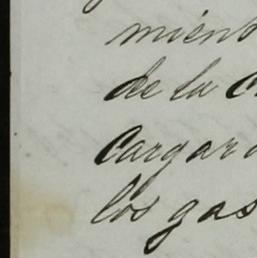 mient
de la
Cargar
los gas